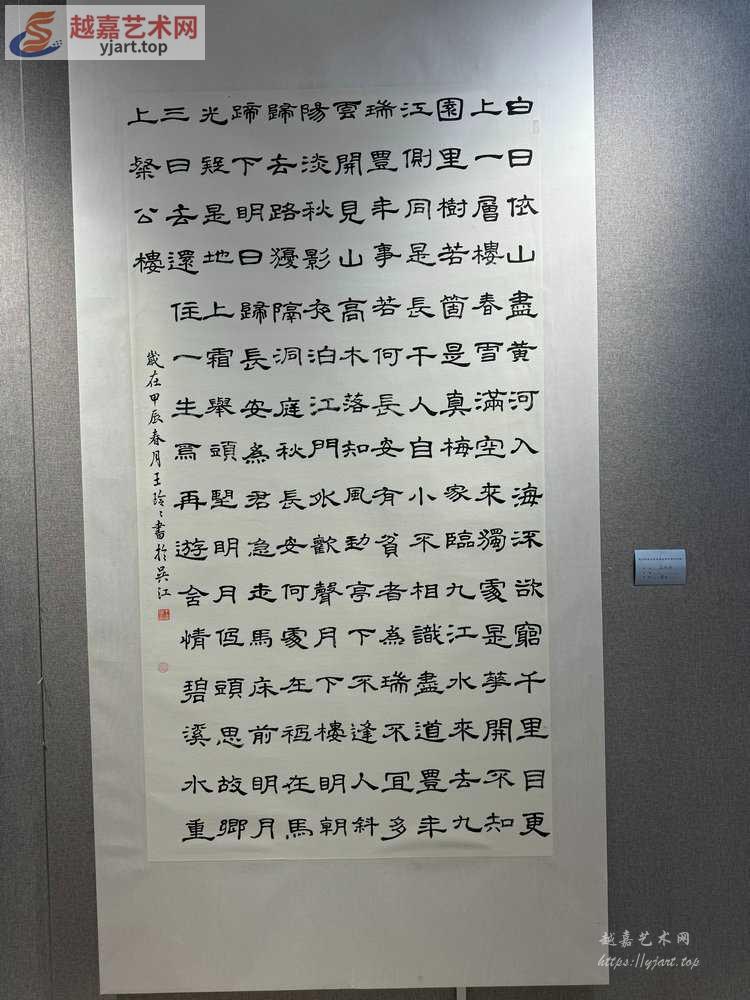 越嘉艺术网
yjart.top
白日依山盡黃河入海流欲窮千里目更
上一層樓春雪滿空來獨處是華開不知
園里樹若箇是真梅家臨九江水來去九
江側同是長干人自小不相識盡道豐年
瑞豐年事若何長安有貧者為瑞不宜多
雲開見山高木落知風勁亭下不逢人斜
陽淡秋影夜泊江門外歡聲月下樓明朝
歸去路猶隔洞庭秋長安何處在祗在馬
蹄下明日歸長安為君急走馬床前明月
光疑是地上霜舉頭望明月低頭思故鄉
三日去還住一生焉再遊含情碧溪水重
上粲公樓
歲在甲辰春月王玲〻書於吳江
越嘉艺术网
https://yjart.top